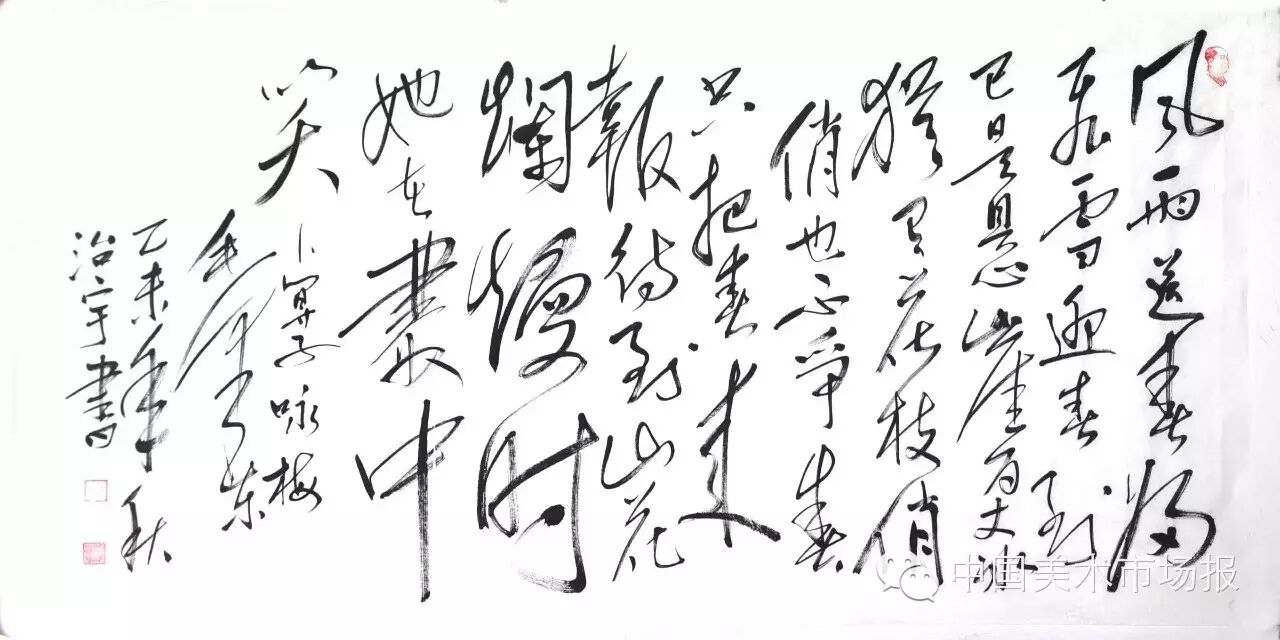 风雨送春归
飞雪迎春到
已是悬崖百丈冰
犹有花枝俏
俏也不争春
只把春来
報待到山花
爛熳时
她在叢中
笑
卜算子咏梅
毛泽东
乙未年秋
治宇書
中国美术市场报